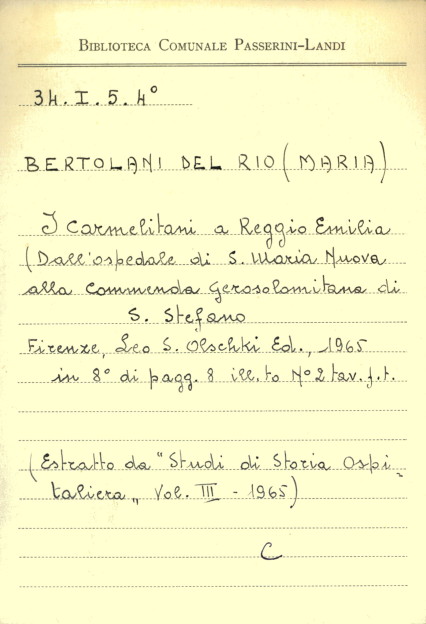 BIBLIOTECA COMUNALE PASSERINI-LANDI
34. I. 5. 4°
BERTOLANI DEL RIO (MARIA)
I Carmelitani a Reggio Emilia
(Dall'ospedale di S. Maria Nuova
alla Commenda Gerosolomitana di
S. Stefano
Firenze, Leo S. Olschki Ed., 1965
in 8° di pagg. 8 ill.to N° 2 tav. f. t.
(Estratto da "Studi di Storia Ospi-
taliera„ Vol. III - 1965)
C